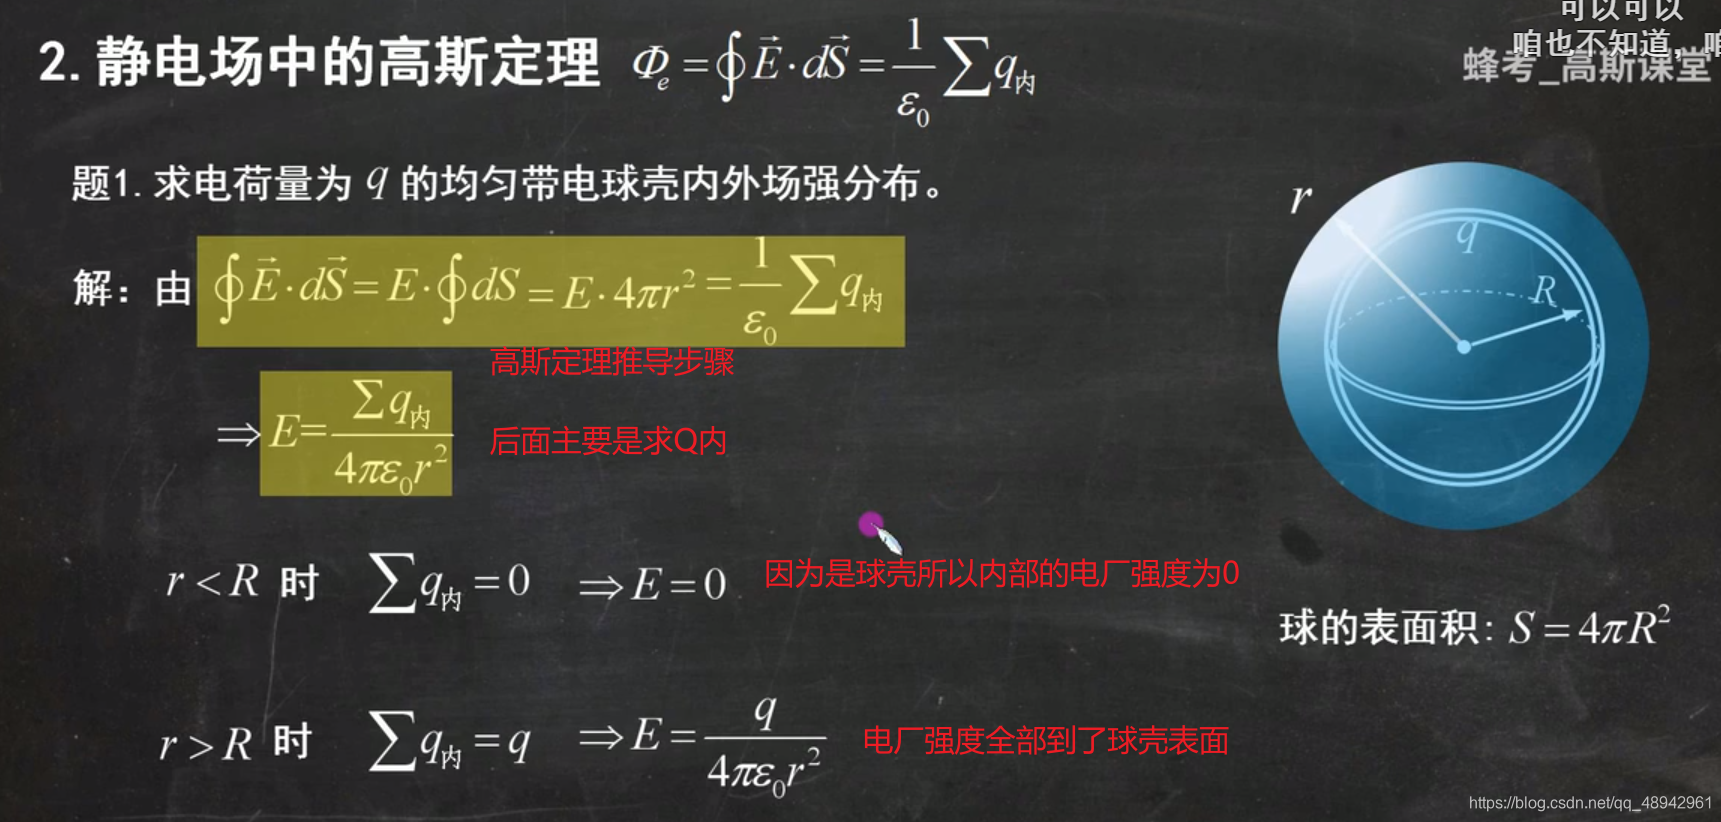 可以可以
咱也不知道，咱
蜂考_高斯课堂
2. 静电场中的高斯定理 Φₑ = ∮E⃗·dS⃗ = 1/ε₀ ∑q内
题1. 求电荷量为 q 的均匀带电球壳内外场强分布。
解：由 ∮E⃗·dS⃗ = E·∮dS = E·4πr² = 1/ε₀ ∑q内
高斯定理推导步骤
⇒ E = ∑q内/4πε₀r²
后面主要是求Q内
r < R 时 ∑q内 = 0 ⇒ E = 0 因为是球壳所以内部的电厂强度为0
r > R 时 ∑q内 = q ⇒ E = q/4πε₀r² 电厂强度全部到了球壳表面
r
q
R
球的表面积: S = 4πR²
https://blog.csdn.net/qq_48942961